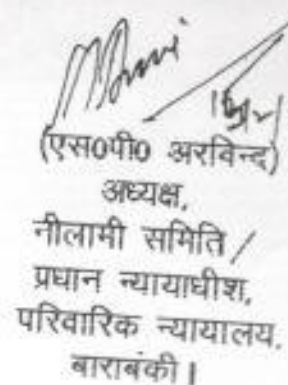 (एस0पी0 अरविन्द)
अध्यक्ष,
नीलामी समिति /
प्रधान न्यायाधीश,
परिवारिक न्यायालय,
बाराबंकी।